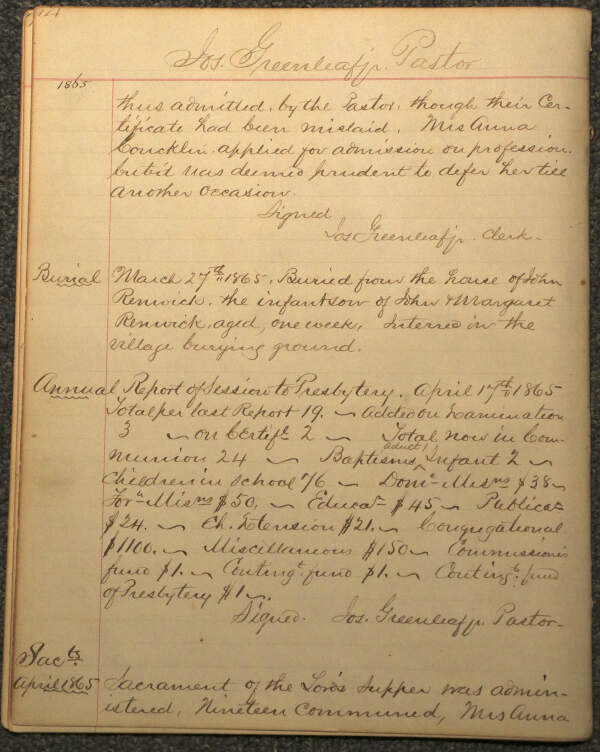 Jos. Greenleaf jr. Pastor
1865
thus admitted, by the Pastor, though their Cer-
tificate had been mislaid. Mrs Anna
Concklin applied for admission on profession,
but it was deemed prudent to defer her till
another occasion.
Signed
Jos. Greenleaf jr. Clerk.
Burial March 27th 1865. Buried from the house of John
Renwick, the infant son of John & Margaret
Renwick, aged, one week, Interred in the
village burying ground.
Annual Report of Session to Presbytery. April 17th 1865
Total per last Report 19. ~ Added on Examination
3 ~ on Certife 2 ~ Total now in Com-
munion 24 ~ Baptisms, adult 1, Infant 2 ~
Children in school 76 ~ Domc Misns $38 ~
Forn Misns $50, ~ Educan $45 ~ Publican
$24. ~ Ch. Extension $21. ~ Congregational
$1100, ~ Miscellaneous $150 ~ Commissioner's
fund $1. ~ Contingt fund $1. ~ Contingt fund
of Presbytery $1 ~.
Signed. Jos. Greenleaf jr. Pastor-
Sacts
April 1865 Sacrament of the Lord's supper was admin-
istered, Nineteen Communed, Mrs Anna